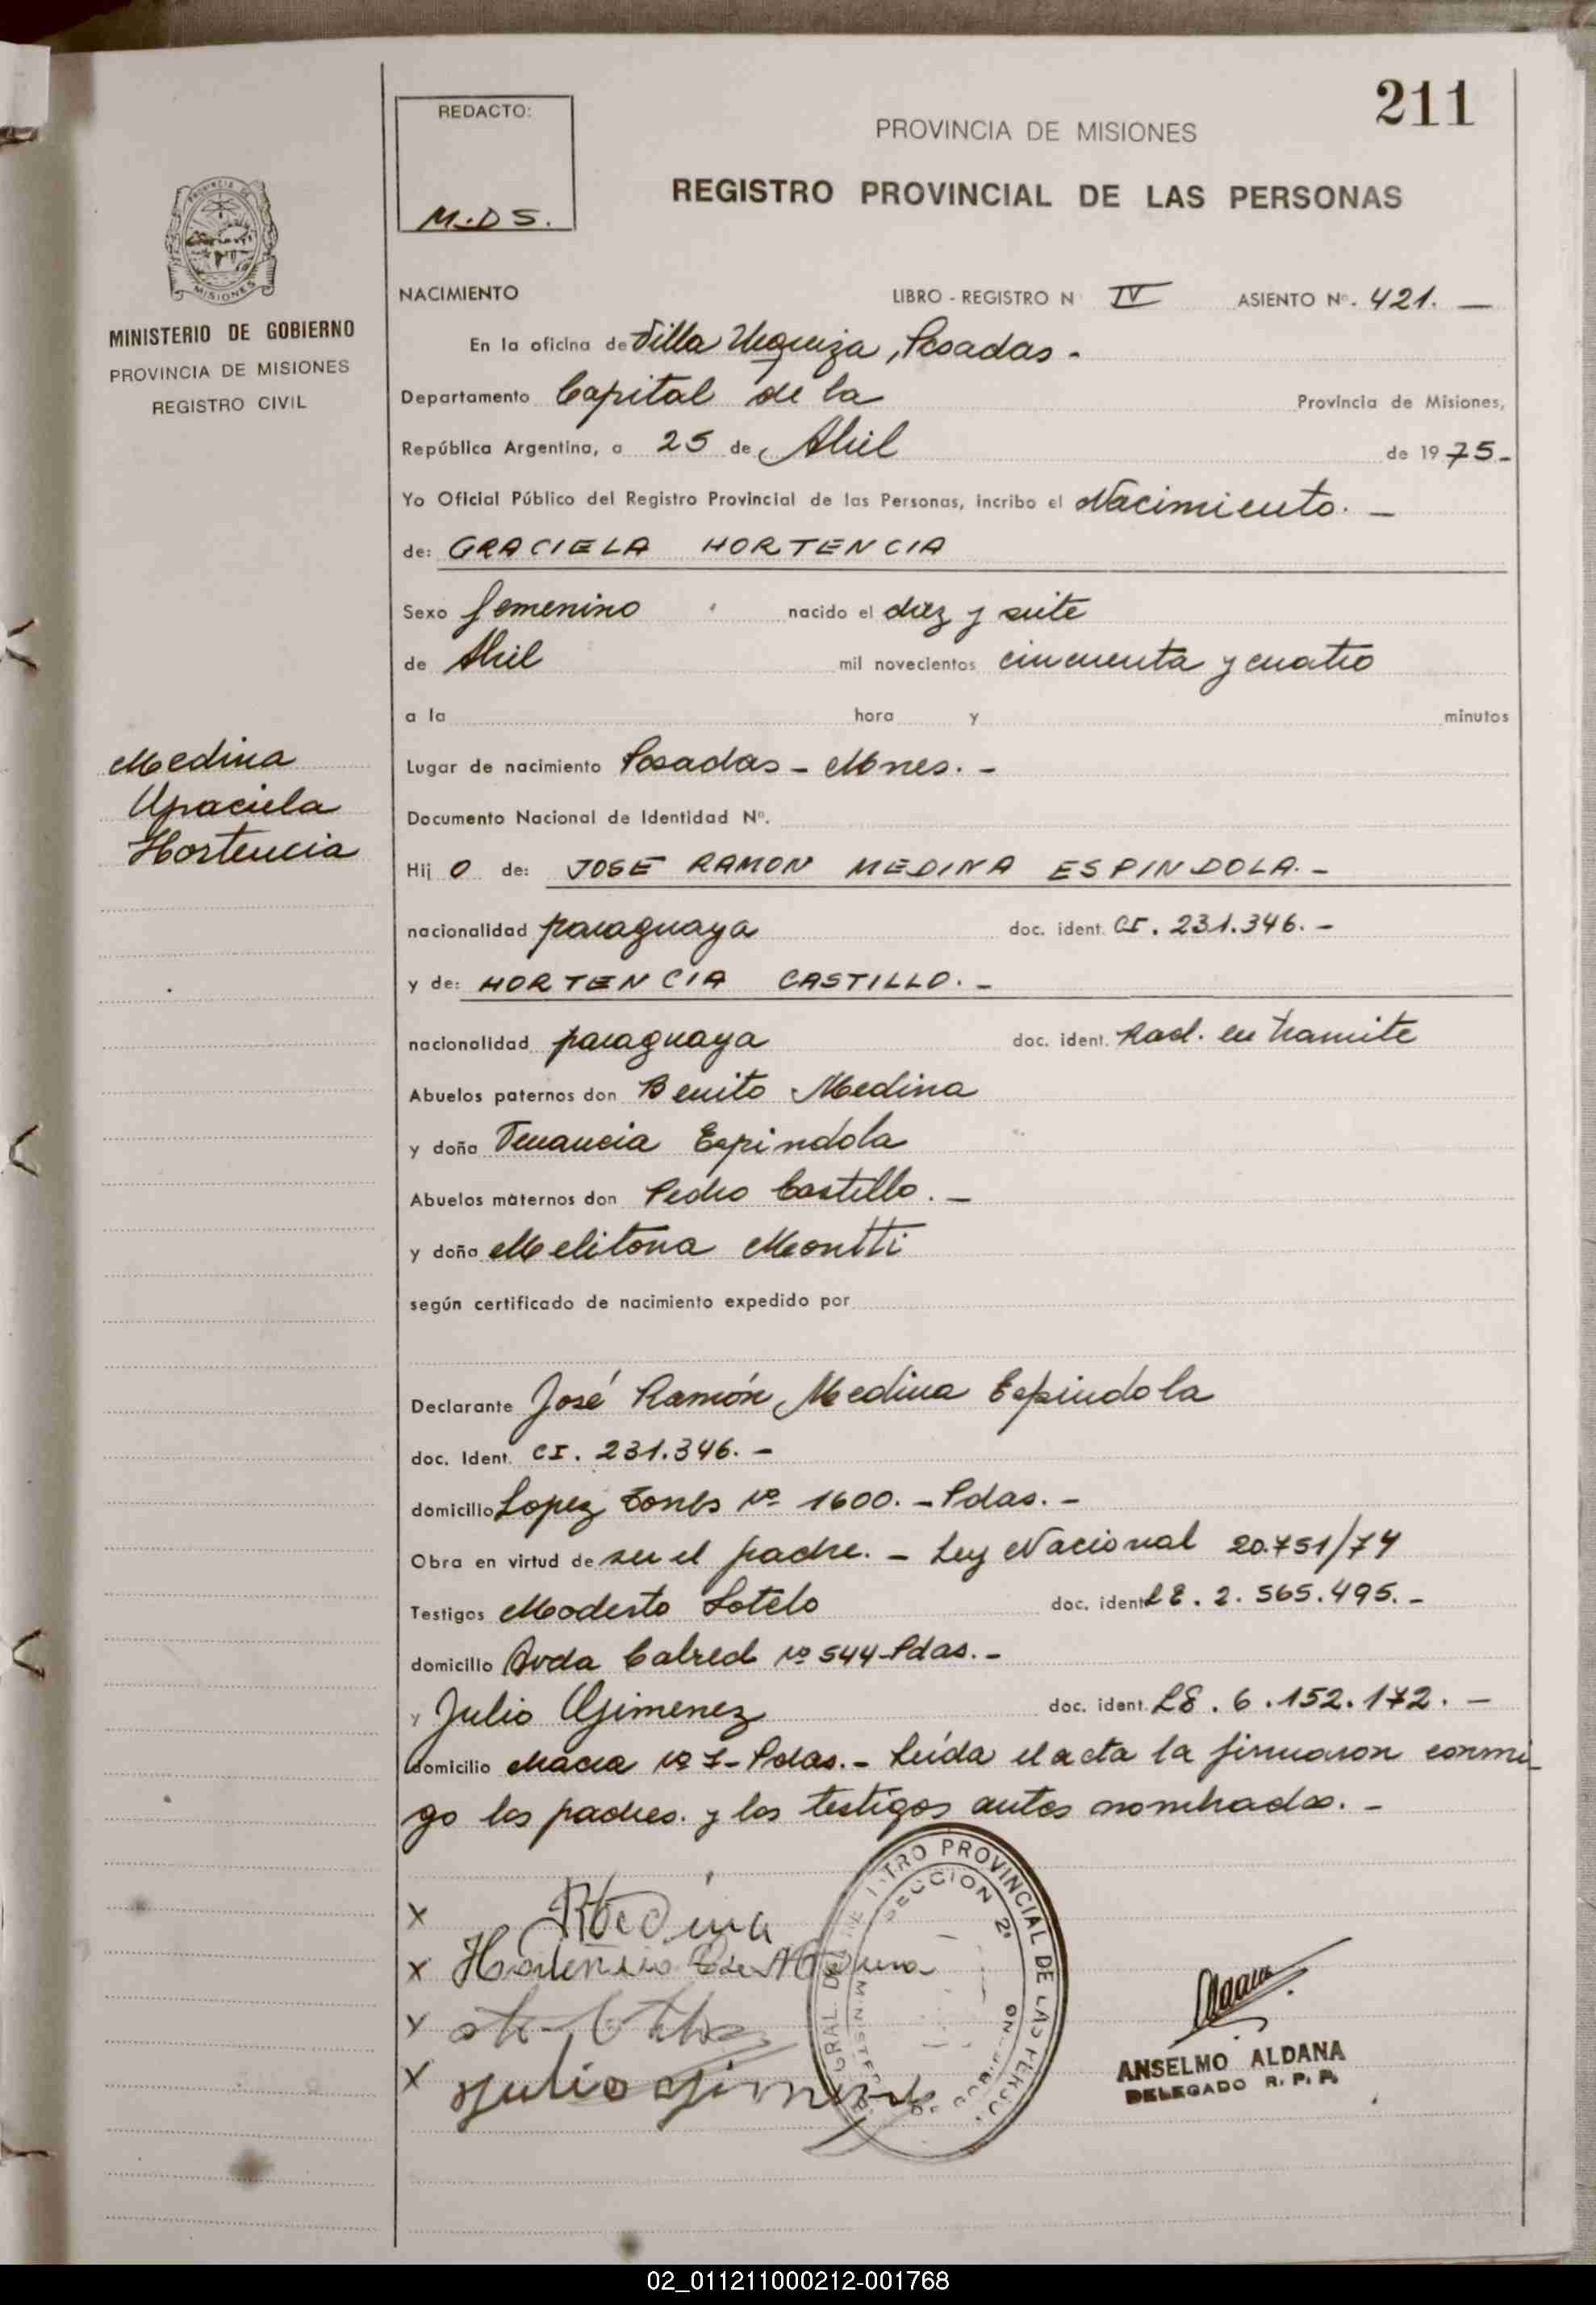 211
REDACTO:
M.D S.
PROVINCIA DE MISIONES
REGISTRO PROVINCIAL DE LAS PERSONAS
PROVINCIA DE
MISIONES
MINISTERIO DE GOBIERNO
PROVINCIA DE MISIONES
REGISTRO CIVIL
NACIMIENTO LIBRO - REGISTRO N IV ASIENTO Nº. 421. —
En la oficina de Villa Urquiza, Posadas -
Departamento Capital de la Provincia de Misiones,
República Argentina, a 25 de Abril de 1975-
Yo Oficial Público del Registro Provincial de las Personas, incribo el Nacimiento. —
de: GRACIELA HORTENCIA
Sexo femenino nacido el diez y siete
de Abril mil novecientos cincuenta y cuatro
a la hora y minutos
Medina
Graciela
Hortencia
Lugar de nacimiento Posadas - Mnes. -
Documento Nacional de Identidad Nº.
Hij o de: JOSE RAMON MEDINA ESPINDOLA. -
nacionalidad paraguaya doc. ident. CI. 231.346. -
y de: HORTENCIA CASTILLO. -
nacionalidad paraguaya doc. ident. Rad. en tramite
Abuelos paternos don Benito Medina
y doña Venancia Espindola
Abuelos maternos don Pedro Castillo. —
y doña Melitona Montti
según certificado de nacimiento expedido por
Declarante José Ramón Medina Espindola
doc. Ident. CI. 231.346. -
domicilio Lopez Torres Nº 1600. - Pdas. -
Obra en virtud de ser el padre. - Ley Nacional 20.751/74
Testigos Modesto Sotelo doc. ident LE. 2.565.495. -
domicilio Avda Cabred Nº 544-Pdas. -
y Julio Gimenez doc. ident. LE. 6.152.172. -
domicilio Nº Pdas. - Leída el acta la firmaron conmi-
go los padres. y los testigos antes nombrados. -
X RMedina
X Hortencia C de Medina
X
X Julio Gimenez
REGISTRO PROVINCIAL DE LAS PERSO
GRAL. DEL
SECCION 2ª
MINISTE DE GOBIERNO
ANSELMO ALDANA
DELEGADO R. P. P.
02_011211000212-001768